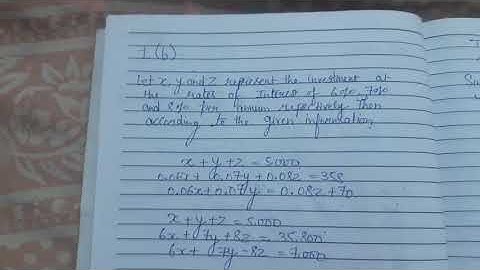 1.(b)
Let x, y and z represent the investment at
the rates of Interest of 6%, 7%
and 8% per annum respectively then
according to the given information,
x + y + z = 5000
0.06x + 0.07y + 0.08z = 358
0.06x + 0.07y = 0.08z + 70
x + y + z = 5.000
6x + 7y + 8z = 35.800
6x + 7y - 8z = 7.000